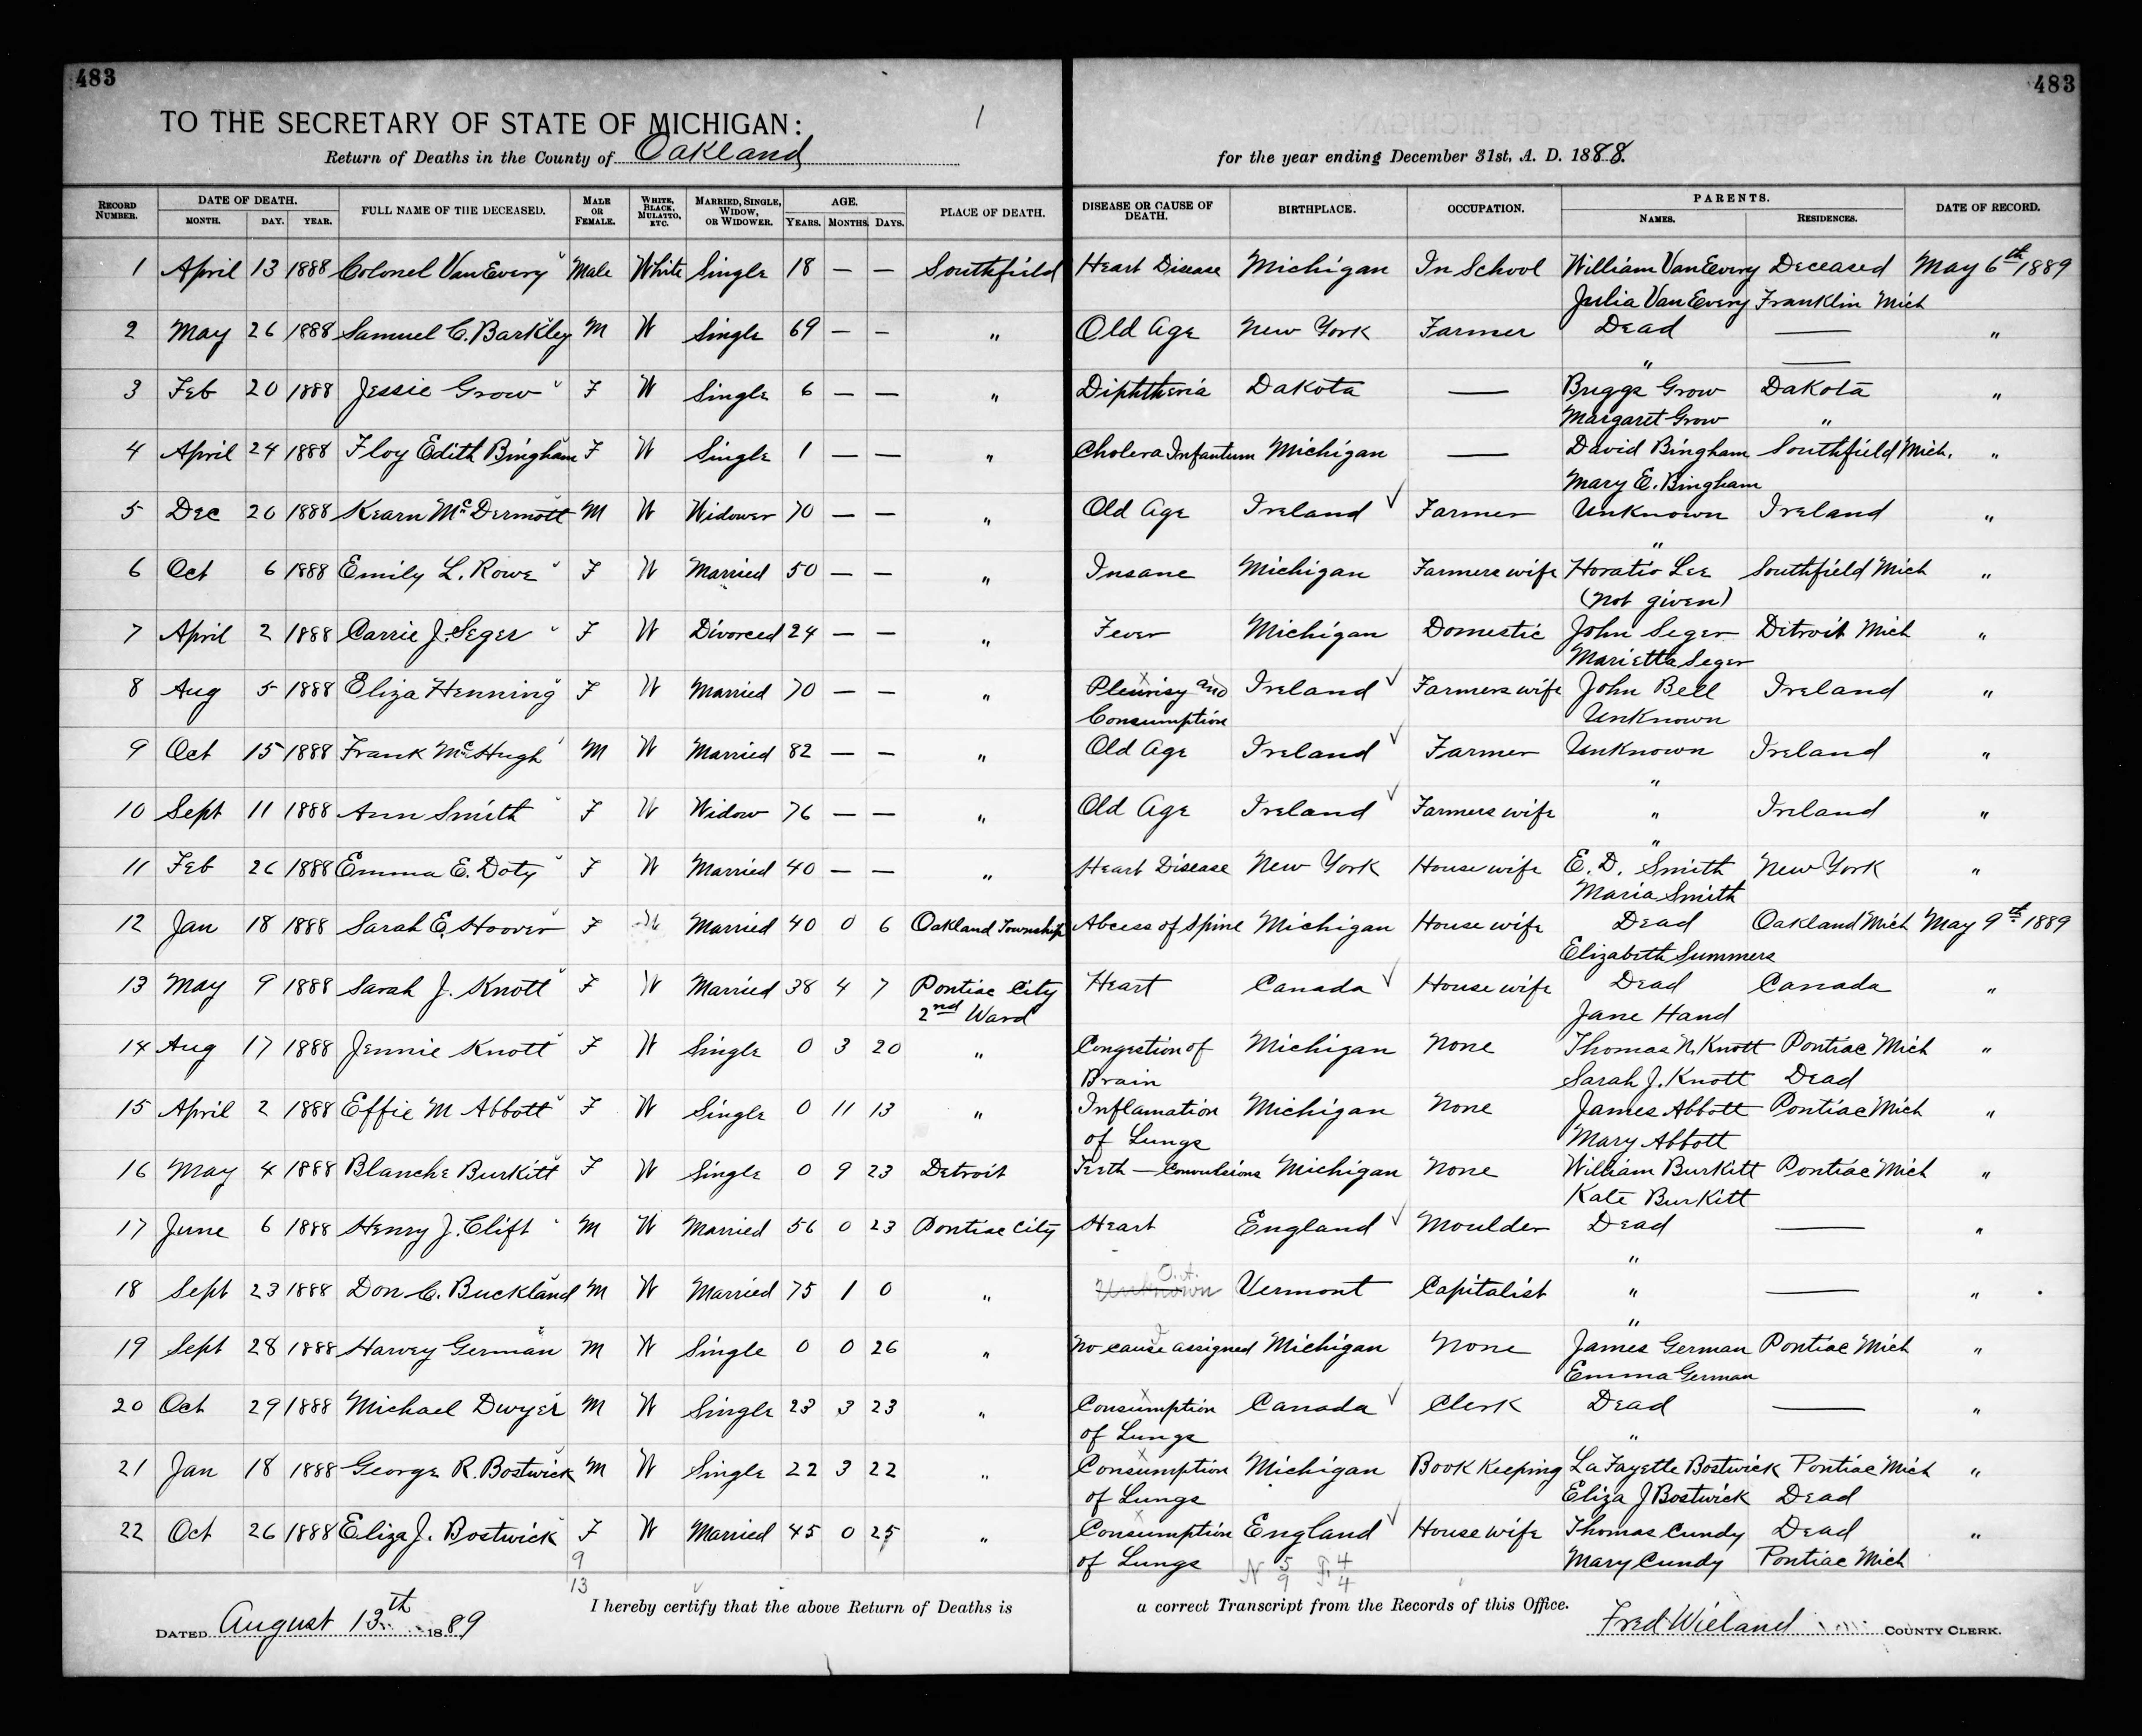 483 483
TO THE SECRETARY OF STATE OF MICHIGAN: 1
Return of Deaths in the County of Oakland for the year ending December 31st, A. D. 1888.
RECORD NUMBER. DATE OF DEATH. MONTH. DAY. YEAR. FULL NAME OF THE DECEASED. MALE OR FEMALE. WHITE, BLACK, MULATTO, ETC. MARRIED, SINGLE, WIDOW, OR WIDOWER. AGE. YEARS. MONTHS. DAYS. PLACE OF DEATH. DISEASE OR CAUSE OF DEATH. BIRTHPLACE. OCCUPATION. PARENTS. NAMES. RESIDENCES. DATE OF RECORD.
1 April 13 1888 Colonel VanEvery Male White Single 18 — — Southfield Heart Disease Michigan In School William VanEvery Deceased May 6th 1889
Julia VanEvery Franklin Mich
2 May 26 1888 Samuel C. Barkley M W Single 69 — — " Old Age New York Farmer Dead — "
" —
3 Feb 20 1888 Jessie Grow F W Single 6 — — " Diphtheria Dakota — Briggs Grow Dakota "
Margaret Grow "
4 April 24 1888 Floy Edith Bingham F W Single 1 — — " Cholera Infantum Michigan — David Bingham Southfield Mich. "
Mary E. Bingham
5 Dec 20 1888 Kearn McDermott M W Widower 70 — — " Old Age Ireland ✓ Farmer Unknown Ireland "
"
6 Oct 6 1888 Emily L. Rowe F W Married 50 — — " Insane Michigan Farmers wife Horatio Lee Southfield Mich "
(Not given)
7 April 2 1888 Carrie J. Seger F W Divorced 24 — — " Fever Michigan Domestic John Seger Detroit Mich "
Marietta Seger
8 Aug 5 1888 Eliza Henning F W Married 70 — — " Pleurisy and Ireland ✓ Farmers wife John Bell Ireland "
Consumption Unknown
9 Oct 15 1888 Frank McHugh M W Married 82 — — " Old Age Ireland ✓ Farmer Unknown Ireland "
"
10 Sept 11 1888 Ann Smith F W Widow 76 — — " Old Age Ireland ✓ Farmers wife " Ireland "
"
11 Feb 26 1888 Emma E. Doty F W Married 40 — — " Heart Disease New York House wife E. D. Smith New York "
Maria Smith
12 Jan 18 1888 Sarah E. Hoover F W Married 40 0 6 Oakland Township Abcess of Spine Michigan House wife Dead Oakland Mich May 9th 1889
Elizabeth Summers
13 May 9 1888 Sarah J. Knott F W Married 38 4 7 Pontiac City Heart Canada ✓ House wife Dead Canada "
2nd Ward Jane Hand
14 Aug 17 1888 Jennie Knott F W Single 0 3 20 " Congestion of Michigan None Thomas N. Knott Pontiac Mich "
Brain Sarah J. Knott Dead
15 April 2 1888 Effie M Abbott F W Single 0 11 13 " Inflamation Michigan None James Abbott Pontiac Mich "
of Lungs Mary Abbott
16 May 4 1888 Blanche Burkitt F W Single 0 9 23 Detroit Teeth — Convulsions Michigan None William Burkitt Pontiac Mich "
Kate Burkitt
17 June 6 1888 Henry J. Clift M W Married 56 0 23 Pontiac City Heart England ✓ Moulder Dead — "
"
18 Sept 23 1888 Don C. Buckland M W Married 75 1 0 " Unknown O.A. Vermont Capitalist " — "
"
19 Sept 28 1888 Harvey German M W Single 0 0 26 " No cause assigned Michigan None James German Pontiac Mich "
Emma German
20 Oct 29 1888 Michael Dwyer M W Single 23 3 23 " Consumption Canada ✓ Clerk Dead — "
of Lungs "
21 Jan 18 1888 George R. Bostwick M W Single 22 3 22 " Consumption Michigan Book Keeping LaFayette Bostwick Pontiac Mich "
of Lungs Eliza J Bostwick Dead
22 Oct 26 1888 Eliza J. Bostwick F W Married 45 0 25 " Consumption England ✓ House wife Thomas Cundy Dead "
9 of Lungs N 5 F. 4 Mary Cundy Pontiac Mich
13 9 4
I hereby certify that the above Return of Deaths is a correct Transcript from the Records of this Office.
DATED August 13th 1889 Fred Wieland COUNTY CLERK.